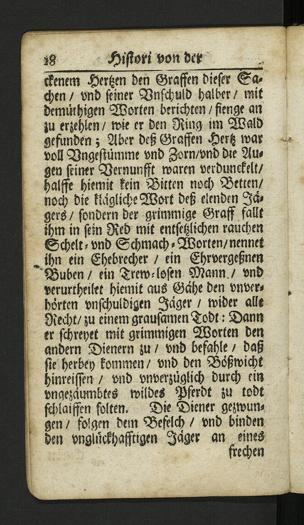 18 Histori von der
ckenem Hertzen den Graffen dieser Sa-
chen / vnd seiner Vnschuld halber / mit
demüthigen Worten berichten / fienge an
zu erzehlen / wie er den Ring im Wald
gefunden ; Aber deß Graffen Hertz war
voll Vngestümme vnd Zorn / vnd die Au-
gen seiner Vernunfft waren verdunckelt /
halffe hiemit kein Bitten noch Betten /
noch die klägliche Wort deß elenden Jä-
gers / sondern der grimmige Graff fallt
ihm in sein Red mit entsetzlichen rauchen
Schelt- vnd Schmach-Worten / nennet
ihn ein Ehebrecher / ein Ehrvergeßnen
Buben / ein Trew-losen Mann / vnd
verurtheilet hiemit aus Gähe den vnver-
hörten vnschuldigen Jäger / wider alle
Recht / zu einem grausamen Todt : Dann
er schreyet mit grimmigen Worten den
andern Dienern zu / vnd befahle / daß
sie herbey kommen / vnd den Bößwicht
hinreissen / vnd vnverzüglich durch ein
vngezäumbtes wildes Pferdt zu todt
schlaiffen solten. Die Diener gezwun-
gen / folgen dem Befelch / vnd binden
den vnglückhafftigen Jäger an eines
frechen